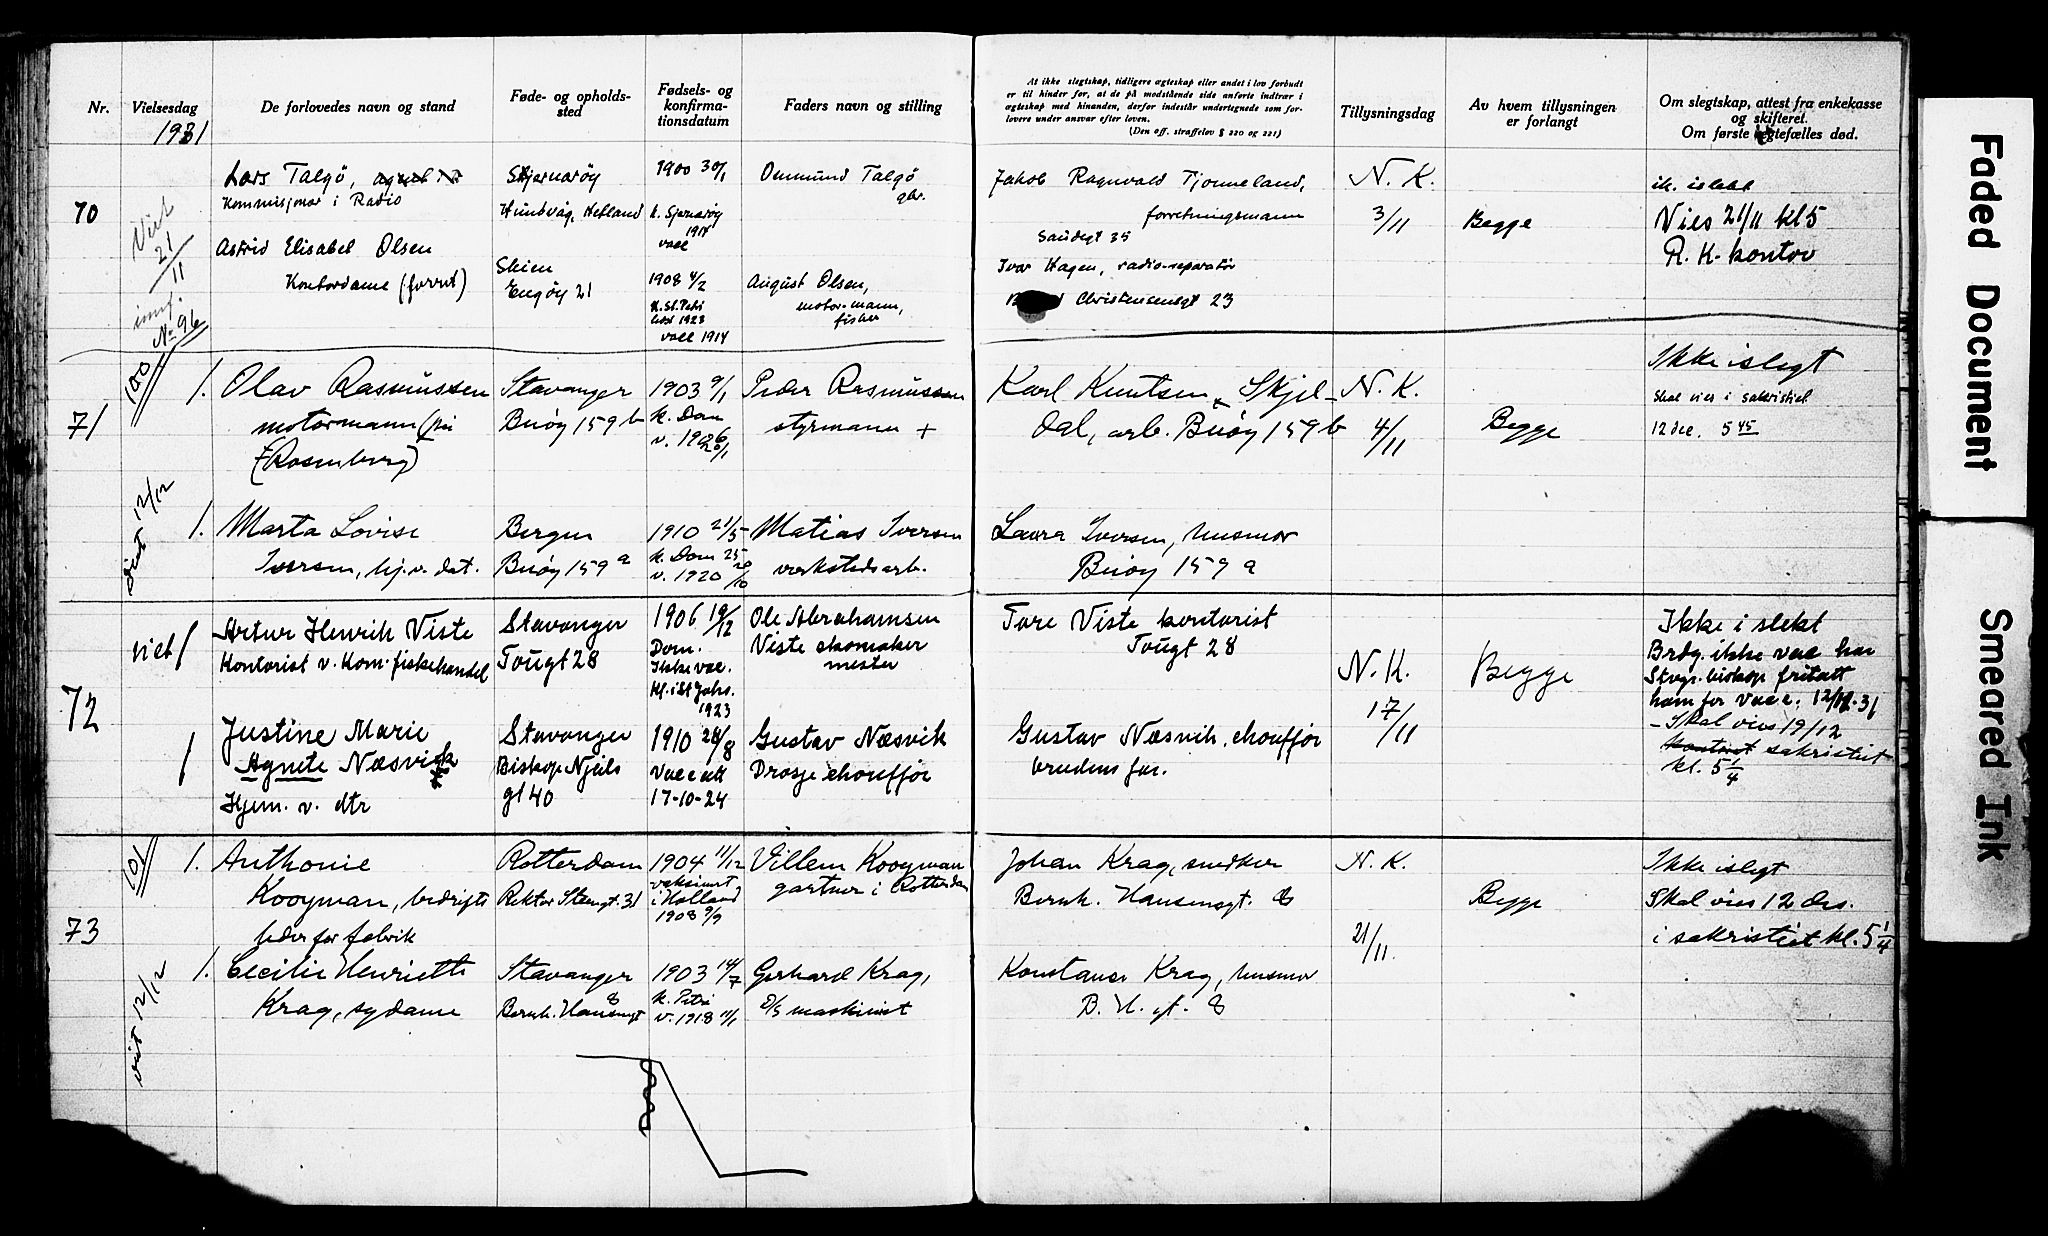 Nr.
Vielsesdag
1931
De forlovedes navn og stand
Føde- og opholds-
sted
Fødsels- og
konfirma-
tionsdatum
Faders navn og stilling
At ikke slegtskap, tidligere ægteskap eller andet i lov forbudt
er til hinder for, at de på modstående side anførte indtrær i
ægteskap med hinanden, derfor indestår undertegnede som for-
lovere under ansvar efter loven.
(Den off. straffelov § 220 og 221)
Tillysningsdag
Av hvem tillysningen
er forlangt
Om slegtskap, attest fra enkekasse
og skifteret.
Om første ægtefælles død.
70
Viet
21/11
innf.
No 96
Lars Talgö,
Kommisjonær i Radio
Astrid Elisabet Olsen
Kontordame (forrut)
Sjernarøy
Hundvåg, Hetland
Skien
Engøy 21
1900 30/1
k. Sjernarøy
1914
vacc
1908 4/2
K. St. Petri
høst 1923
vacc 1914
Ommund Talgö
gbr.
August Olsen,
motor-mann,
fisker
Jakob Ragnvald Tjönneland,
forretningsmann
Sandegt 35
Ivar Hagen, radio-reparatør
Christensensgt 23
N. K.
3/11
Begge
ik. islekt
Vies 21/11 kl 5
R. K. kontor
71
100
viet 12/12
1. Olav Rasmussen
motormann (på
(Rosenberg)
1. Marta Lovise
Iversen, hj. v. dat.
Stavanger
Buøy 159 b
Bergen
Buøy 159 a
1903 9/1
k. Dom
v. 1906 26/1
1910 21/5
k. Dom 25
v. 1920 20/10
Peder Rasmussen
styrmann +
Matias Iversen
verkstedsarb.
Karl Knutsen Skjel-
dal, arb. Buøy 159 b
Laura Iversen, husmor
Buøy 159 a
N. K.
4/11
Begge
Ikke i slegt
Skal vies i sakristiet
12 dec. 5 45
72
viet /
Artur Henrik Viste
Kontorist v. Kom. fiskehandel
Justine Marie
Agnete Næsvik
Hjem. v. dtr
Stavanger
Tougt 28
Stavanger
Biskop Njåls
gt 40
1906 19/12
Dom.
Ikke vac.
Kf. i St Johs.
1923
1910 28/8
Vac. att
17-10-24
Ole Abrahamsen
Viste skomaker
mester
Gustav Næsvik
Drosje chauffør
Tore Viste kontorist
Tougt 28
Gustav Næsvik, chauffør
brudens far.
N. K.
17/11
Begge
Ikke i slekt
Brdg. ikke vac har
Stvgr. biskop fritatt
ham for vacc. 12/12-31
- Skal vies 19/12
kontoret sakristiet
kl. 5 1/4
73
101
viet 12/12
1. Anthonie
Kooyman, bedrifts
leder for fabrik
1. Cecilie Henriette
Krag, sydame
Rotterdam
Rektor Steengt. 31
Stavanger
Bernh. Hansensgt 8
1904 11/12
vaksinert
i Holland
1908 9/9
1903 14/7
k. Petri
v. 1918 11/1
Villem Kooyman
gartner i Rotterdam
Gerhard Krag,
D/S maskinist
Johan Krag, snedker
Bernh. Hansensgt. 8
Konstanse Krag, husmor
B. H. gt. 8
N. K.
21/11.
Begge
Ikke islegt
Skal vies 12 des.
i sakristiet kl. 5 1/4
Faded Document
Smeared Ink